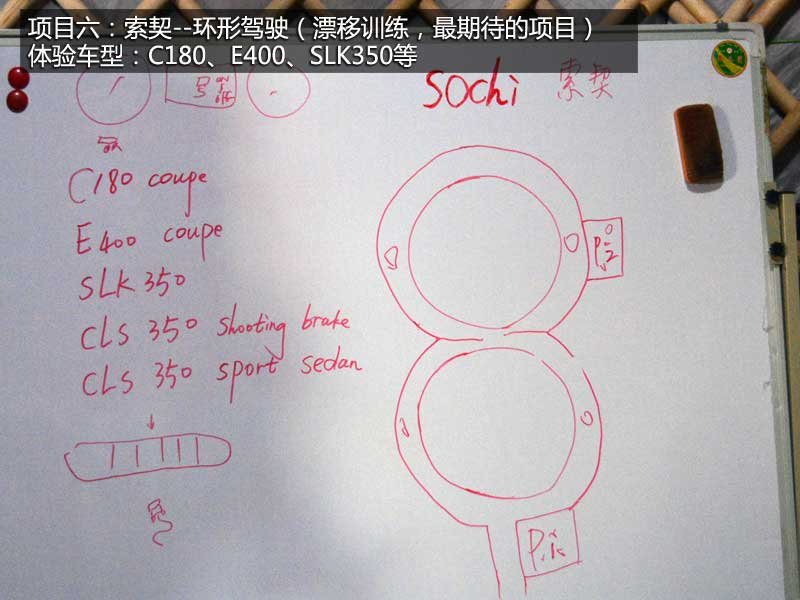 项目六：索契--环形驾驶（漂移训练，最期待的项目）
体验车型：C180、E400、SLK350等
sochi 索契
C180 coupe
E400 coupe
SLK 350
CLS 350 shooting brake
CLS 350 sport sedan